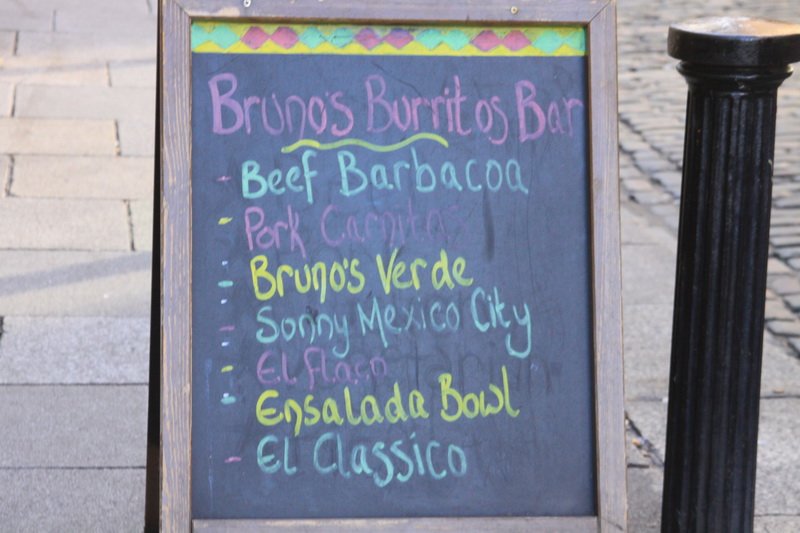 Bruno's Burritos Bar
Beef Barbacoa
Pork Carnitas
Bruno's Verde
Sonny Mexico City
El Flaco
Ensalada Bowl
El Classico